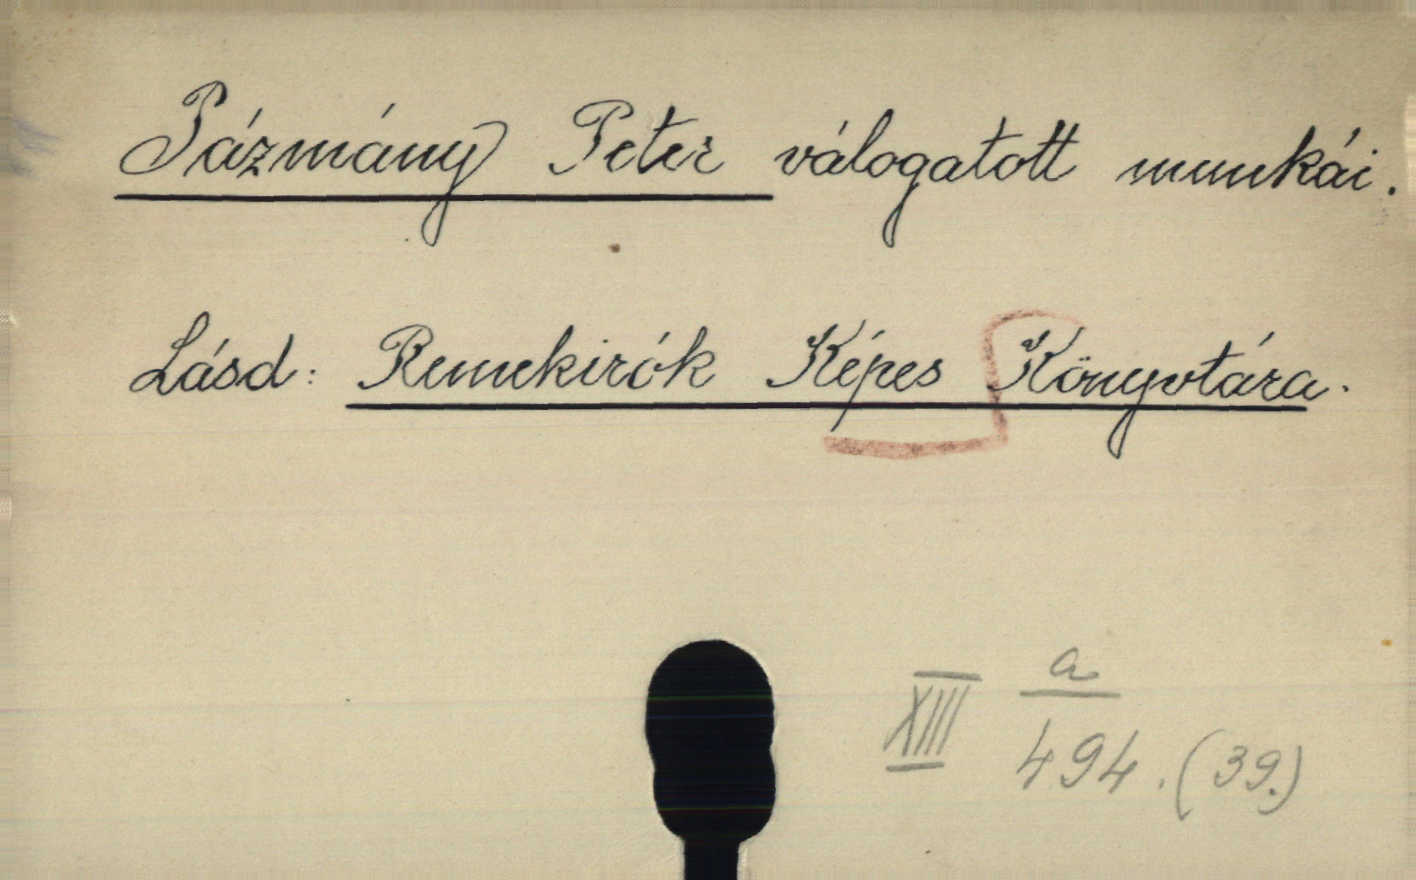 Pázmány Peter válogatott munkái.
Lásd: Remekirók Képes Könyvtára.
XIII a/494. (39.)